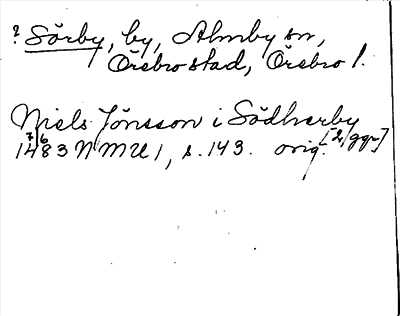 ? Sörby, by, Almby sn,
Örebro stad, Örebro l.
Niels Jönsson i Södherby
7/6 [2 ggr]
1483 NMU 1, s. 143. orig.